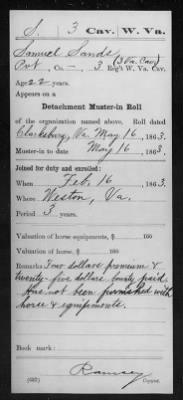 S. 3 Cav. W. Va.
Samuel Sands
Pvt, Co. — 3 (3 Va. Cav.) Reg't W. Va. Cav.
Age 22 years.
Appears on a
Detachment Muster-in Roll
of the organization named above. Roll dated
Clarksburg, Va. May 16, 1863.
Muster-in to date May 16, 1863.
Joined for duty and enrolled:
When Feb. 16, 1863.
Where Weston, Va.
Period 3 years.
Valuation of horse equipments, $ 100
Valuation of horse, $ 100
Remarks Four dollars premium &
twenty-five dollars bounty paid.
Has not been furnished with
horse & equipments.
Book mark:
Ramsey
(637) Copyist.